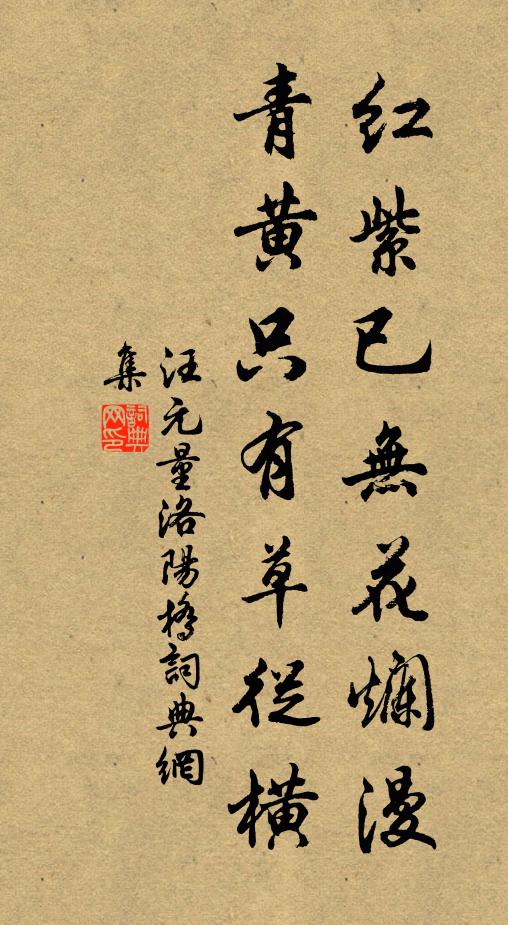 紅紫已無花爛漫
青黃只有草從橫
汪元量洛陽橋詞典網
集
詞典網印